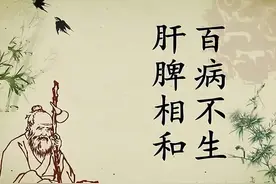 百病不生
肝脾相和